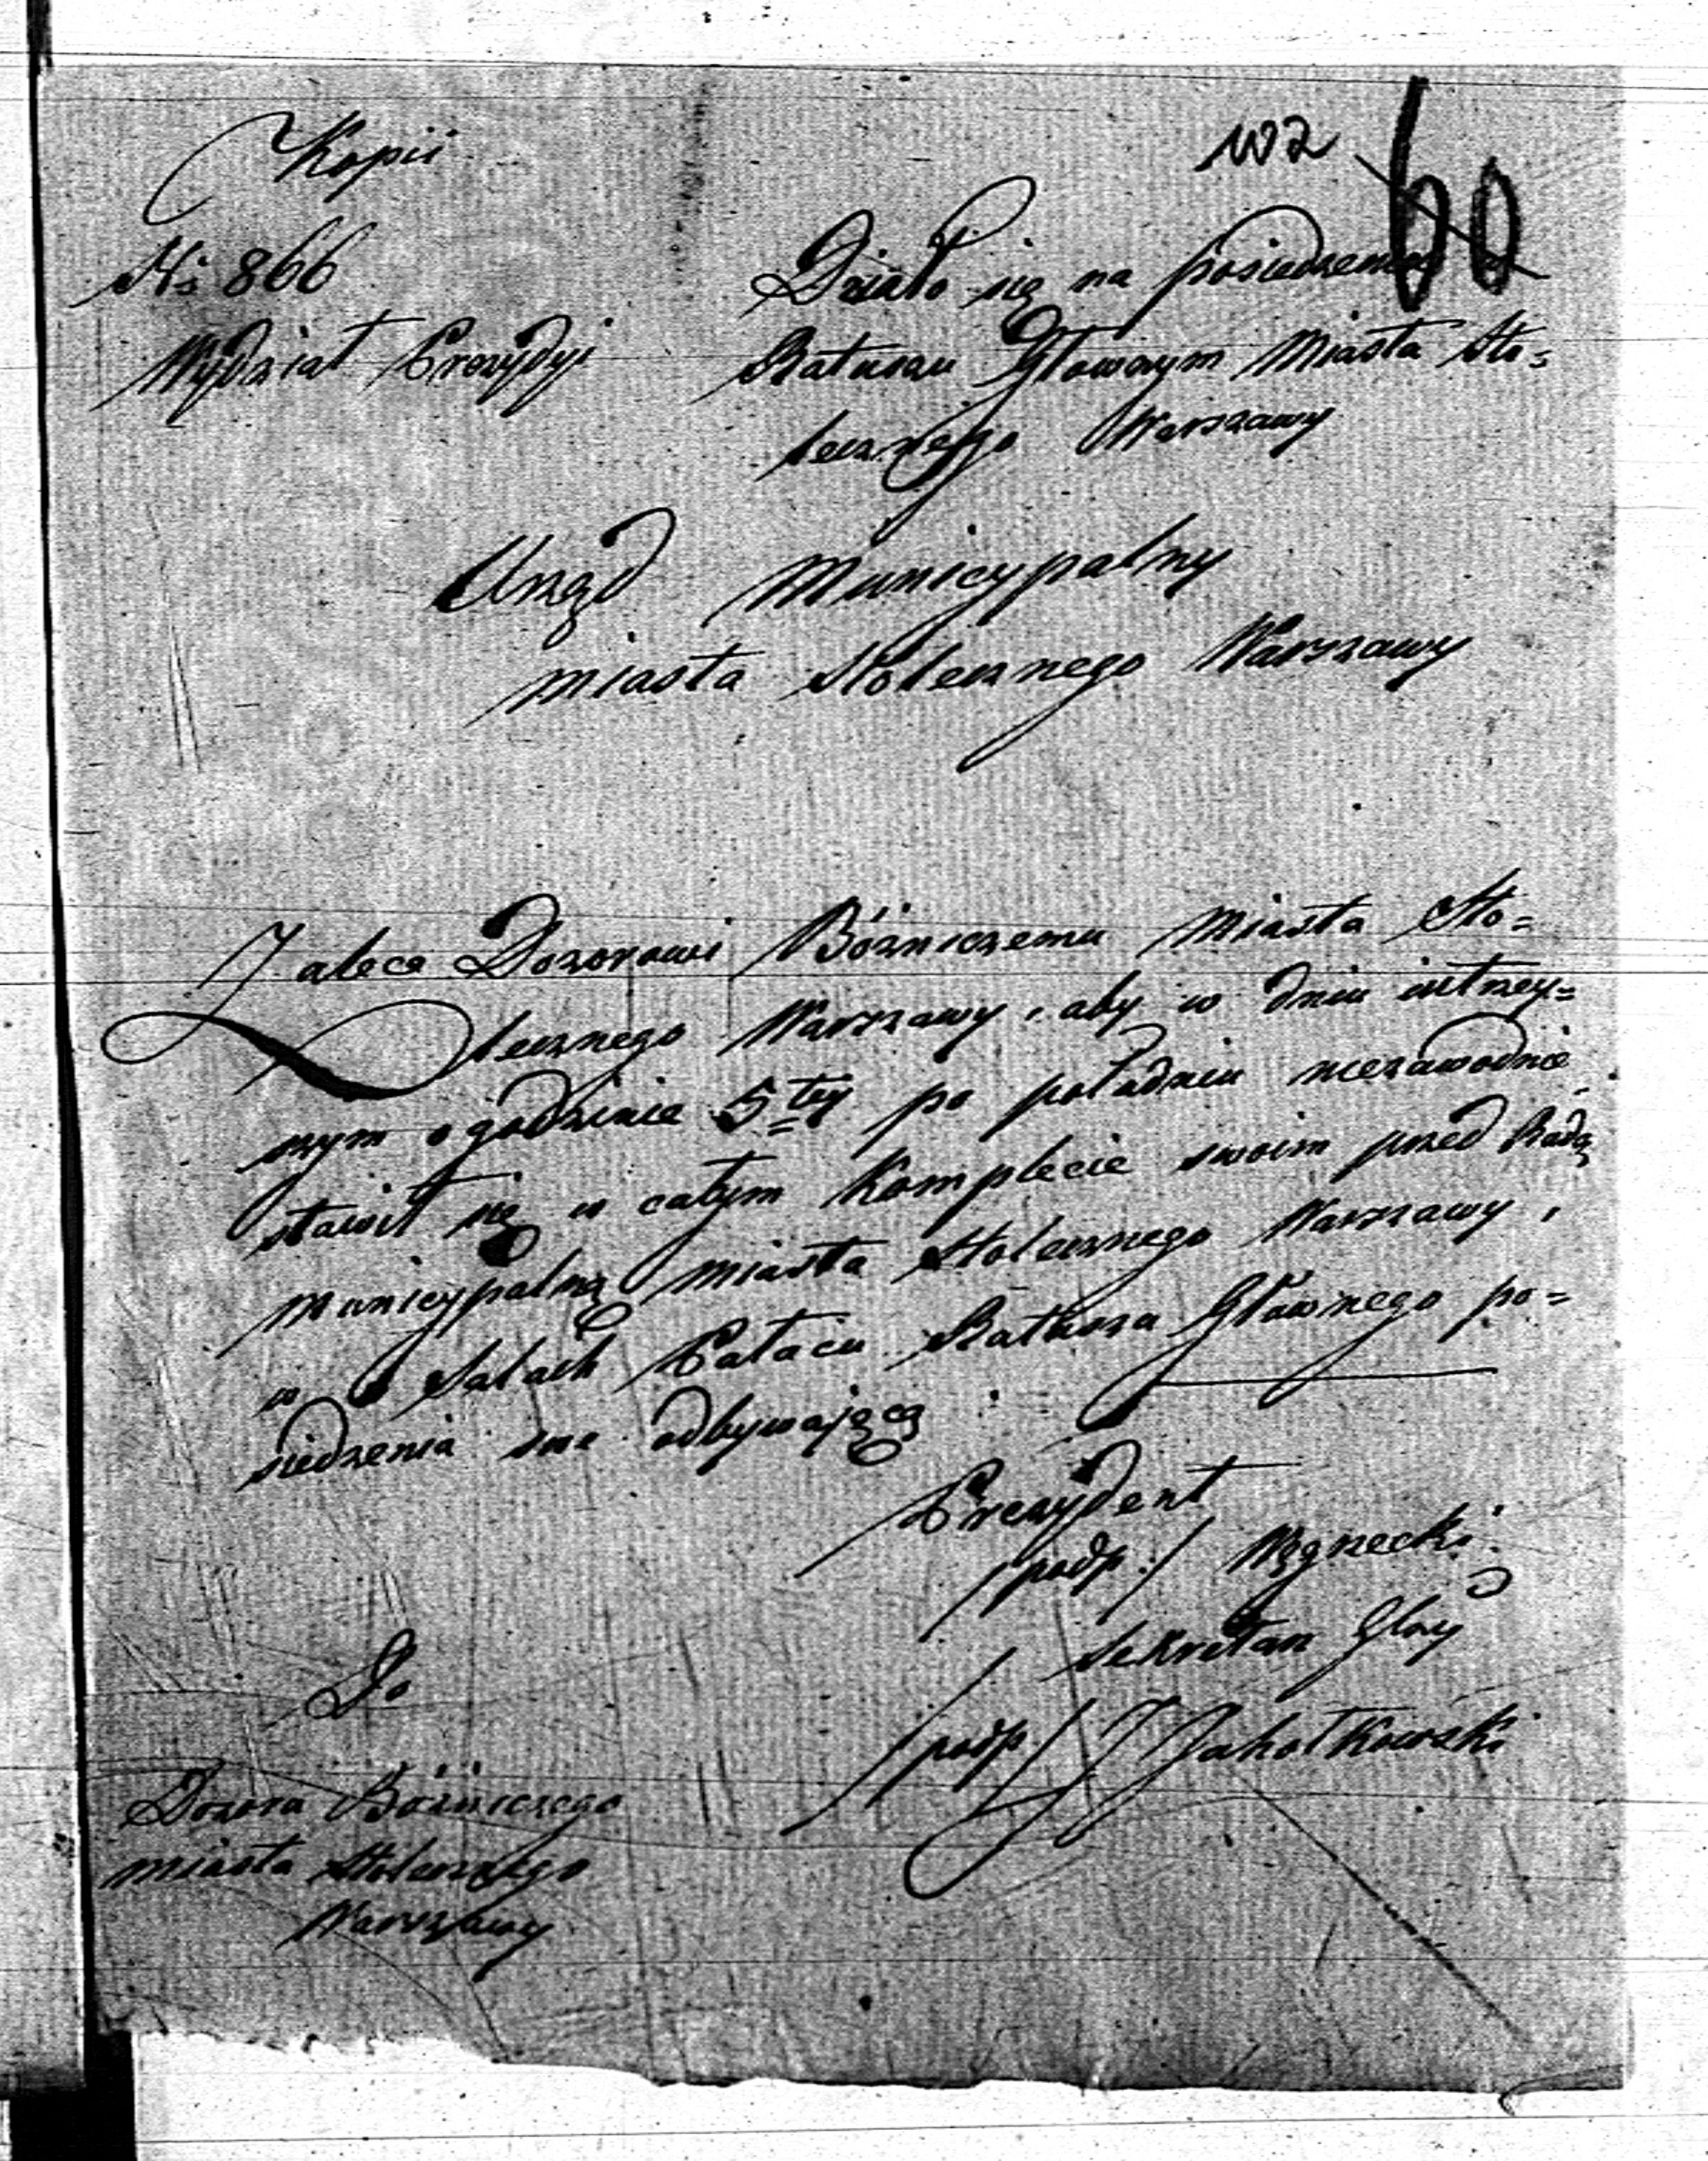 Kopii
102
60
No 866
Wydział Prezydyi
Działo się na posiedzeniu
Ratuszu Głownym Miasta Sto=
łecznego Warszawy
Urząd Municypalny
Miasta Stołecznego Warszawy
Zaleca Dozorowi Bózniczemu Miasta Sto=
łecznego Warszawy, aby w dniu iutrzey=
szym o godzinie 5tey po południu niezawodnie
stawił się w całym Komplecie swoim przed Radą
Municypalną Miasta Stołecznego Warszawy,
w Salach Pałacu Ratusza Głównego po=
siedzenia swe odbywaiącą
Prezydent
/podp:/ Węgrzecki
Sekretarz Glny
/podp/ J Jahołkowski
Do
Dozoru Bózniczego
Miasta Stołecznego
Warszawy